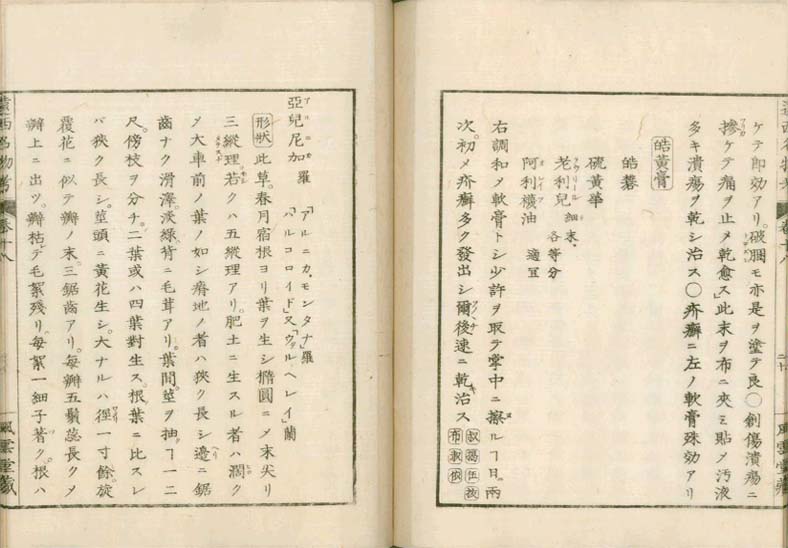 ケテ即効アリ。破膕モ亦是ヲ塗テ良〇創傷潰瘍ニ
摻ケテ痛ヲ止メ乾愈ス」此末ヲ布ニ夾ミ貼メ汚液
多キ潰瘍ヲ乾シ治ス〇疥癬ニ左ノ軟膏殊効アリ
皓黄膏
皓礬
硫黄華
老利兒 細末 各等分
阿利襪油 適宜
右調和メ軟膏トシ少許ヲ取テ掌中ニ擦ルヿ日ニ兩
次。初メ疥癬多ク發出シ爾後速ニ乾治ス
亞兒尼加 羅「アルニカ。モンタナ」羅
「パルコロイド」又「ウァルヘレイ」蘭
形狀 此草。春月宿根ヨリ葉ヲ生シ橢圓ニメ末尖リ
三縱理若クハ五縱理アリ。肥土ニ生スル者ハ濶ク
メ大車前ノ葉ノ如シ瘠地ノ者ハ狹ク長シ邊ニ鋸
齒ナク滑澤。淡綠背ニ毛茸アリ。葉間。莖ヲ抽ヿ一二
尺。傍枝ヲ分チ。二葉或ハ四葉對生ス。根葉ニ比スレ
バ狹ク長シ。莖頭ニ黃花生シ。大ナルハ徑一寸餘。旋
覆花ニ似テ瓣ノ末。三鋸齒アリ。每瓣五鬚蕊長クメ
瓣上ニ出ツ。瓣枯テ毛絮殘リ。每絮一細子著ク。根ハ
遠西名物考 卷十八 風雲堂藏